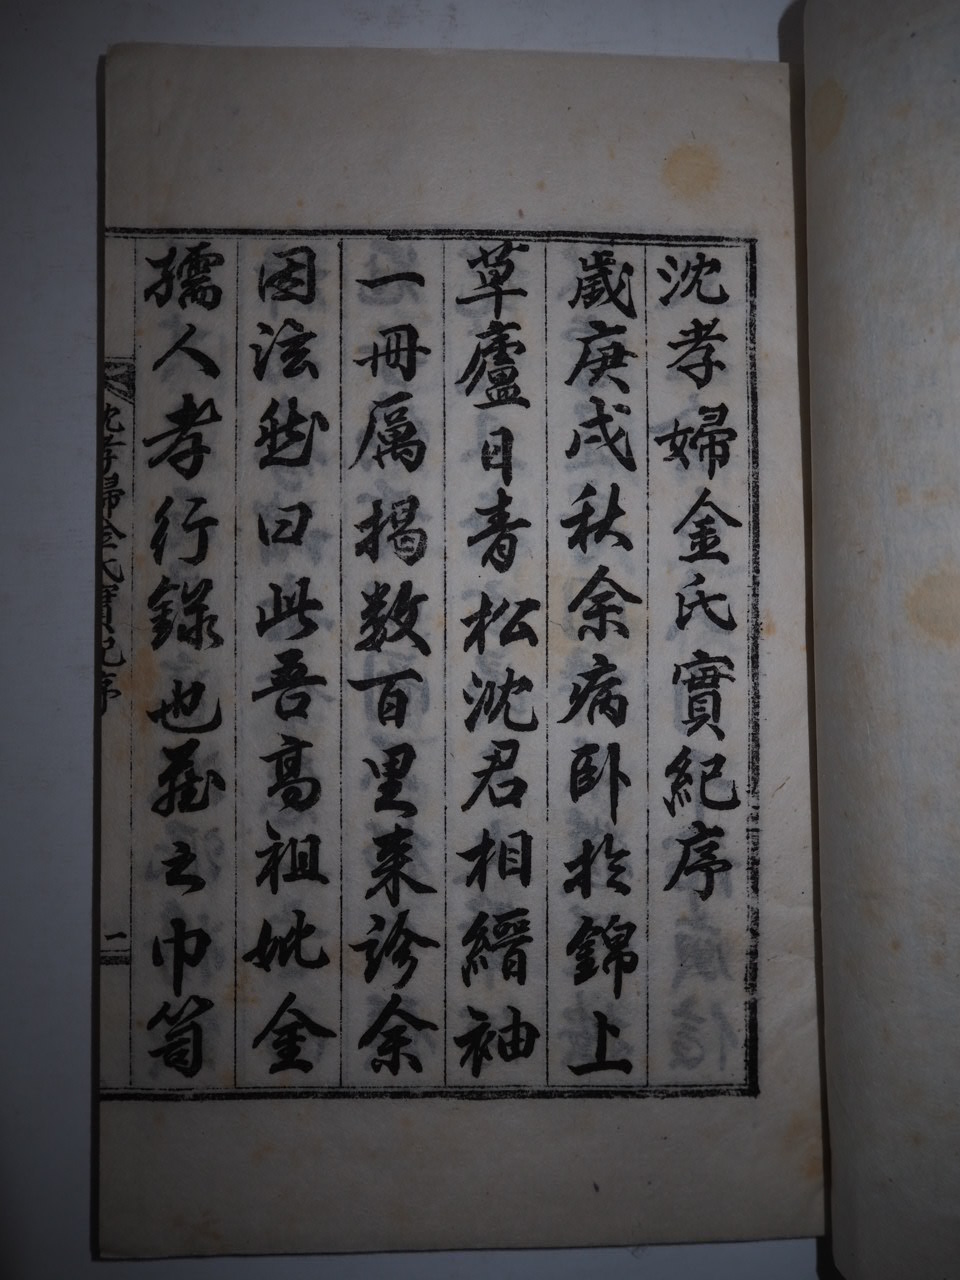 沈孝婦金氏實紀序
歲庚戌秋余病卧於錦上
草廬日青松沈君相縉袖
一冊厲揭数百里来診余
因泫然曰此吾高祖妣金
孺人孝行錄也藏之巾笥
沈孝婦金氏實紀序
一